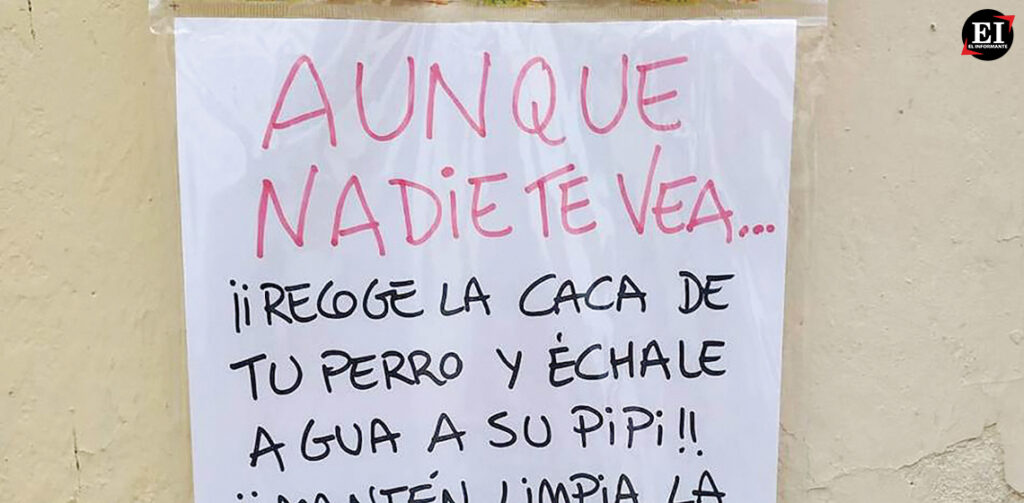 EI
EL INFORMANTE
AUNQUE
NADIE TE VEA...
¡¡RECOGE LA CACA DE
TU PERRO Y ÉCHALE
AGUA A SU PIPI!!
¡¡MANTÉN LIMPIA LA